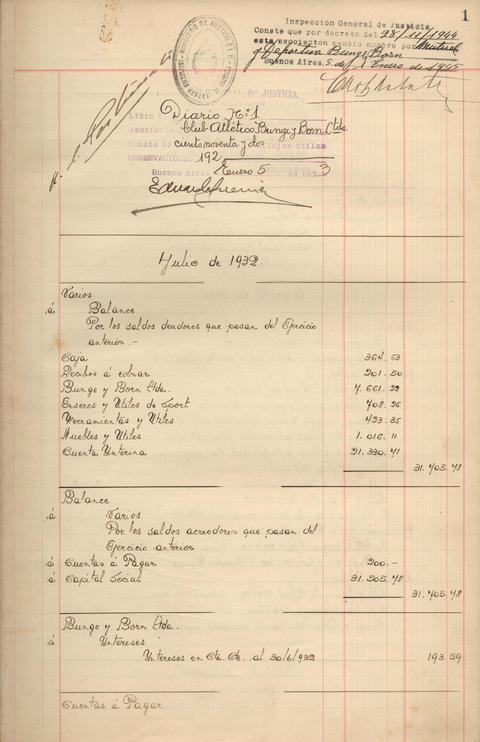 1
Inspección General de Justicia
Consta que por decreto del 28/11/1944
esta asociación cambió nombre por Mutual
y Deportiva Bunge Born
Buenos Aires, 5 de Enero de 1945
DE JUSTICIA
Diario No. 1
Club Atlético Bunge y Born Ltda
Consta de ciento noventa y dos fojas útiles
192
OBSERVACIONES
Buenos Aires Enero 5 de 1933
Julio de 1932.
Varios
á Balance
Por los saldos deudores que pasan del Ejercicio
anterior.-
Caja 364.63
Recibos á cobrar 201.50
Bunge y Born Ltda. 7.661.22
Enseres y Utiles de Sport 408.26
Herramientas y Utiles 423.35
Muebles y Utiles 1.016.11
Cuenta Interina 21.330.41
31.405.48
Balance
á Varios
Por los saldos acreedores que pasan del
Ejercicio anterior
á Cuentas á Pagar 200.-
á Capital Social 31.505.48
31.405.48
Bunge y Born Ltda.
á Intereses
Intereses en Cta. Cte. al 30/6/932 193.59
Cuentas á Pagar